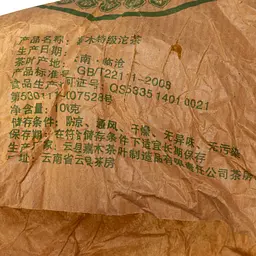 产品名称：木特级沱茶
生产日期：
茶叶产地：南·临沧
产品标准号：GB/T22111-2008
食品生产许可证号：QS533514010021
第530111-107528号
净含量：100克
储存条件：阴凉、通风、干燥、无异味、无污染
保质期：在符合储存条件下适宜长期保存
生产厂家：云县嘉木茶叶制造品有限责任公司茶房
址：云南省云县茶房